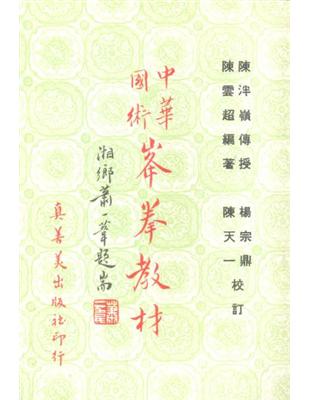 陳泮嶺傳授　楊宗鼎
陳雲超編著　陳天一校訂
中華
國術
峯拳教材
湘鄉蕭一葦題耑
真善美出版社印行